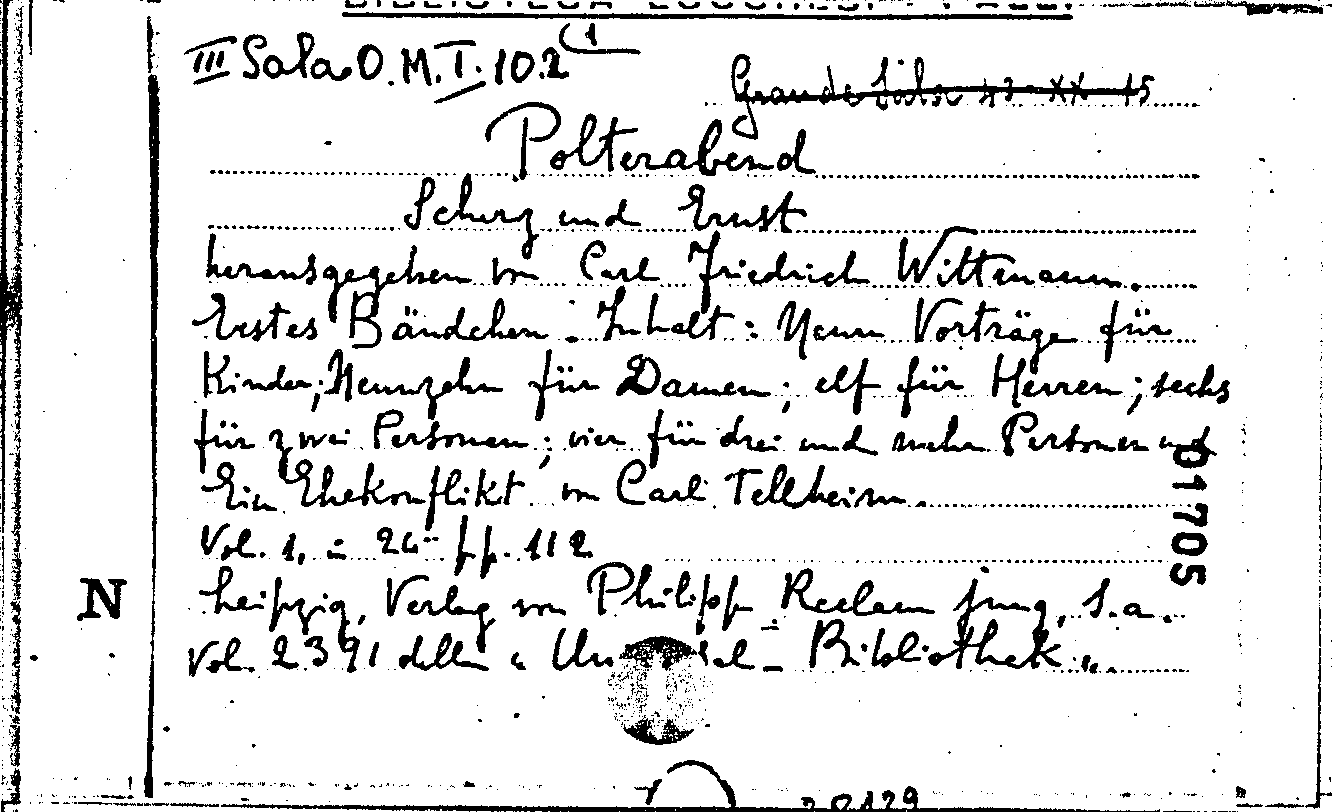 III Sala O.M.I. 10.2 (1
Grande Sala 43-XX-15
Polterabend
Scherz und Ernst
herausgegeben von Carl Friedrich Wittmann.
Erstes Bändchen. Inhalt: Neun Vorträge für
Kinder; Neunzehn für Damen; elf für Herren; sechs
für zwei Personen; vier für drei und mehr Personen und
Ein Ehekonflikt von Carl Tellheim.
Vol. 1, in 24° pp. 112
Leipzig, Verlag von Philipp Reclam jung, s.a.
Vol. 2391 della "Universal-Bibliothek".
01705
N